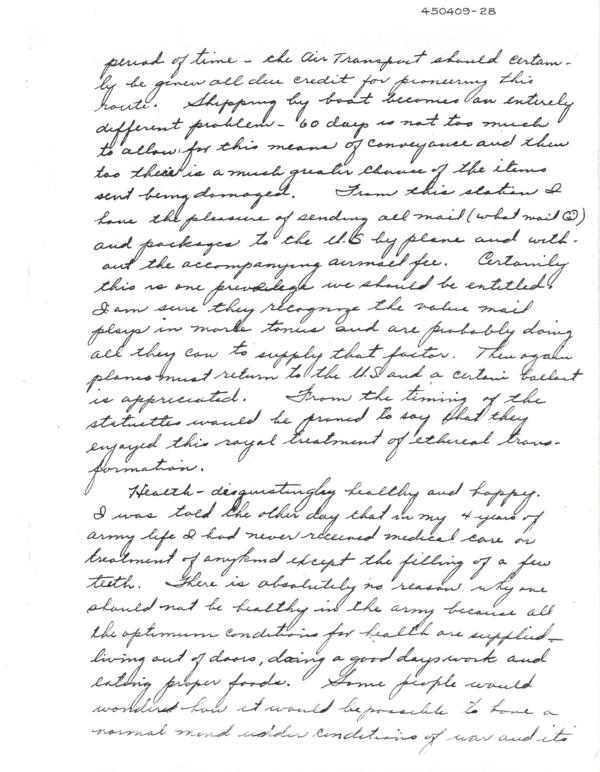 450409-28
period of time - the Air Transport should certain-
ly be given all due credit for pioneering this
route. Shipping by boat becomes an entirely
different problem - 60 days is not too much
to allow for this means of conveyance and then
too there is a much greater chance of the items
sent being damaged. From this station I
have the pleasure of sending all mail (what mail ☺)
and packages to the U.S by plane and with-
out the accompanying airmail fee. Certainly
this is one prevelege we should be entitled.
I am sure they recognize the value mail
plays in morale tonus and are probably doing
all they can to supply that factor. Then again
planes must return to the U.S and a certain ballast
is appreciated. From the timing of the
statuettes would be proned to say that they
enjoyed this royal treatment of ethereal trans-
formation.
Health - disguistingly healthy and happy.
I was told the other day that in my 4 years of
army life I had never received medical care or
treatment of anykind except the filling of a few
teeth. There is absolutely no reason why one
should not be healthy in the army because all
the optimum conditions for health are supplied -
living out of doors, doing a good days work and
eating proper foods. Some people would
wonder how it would be possible to have a
normal mind under conditions of war and its